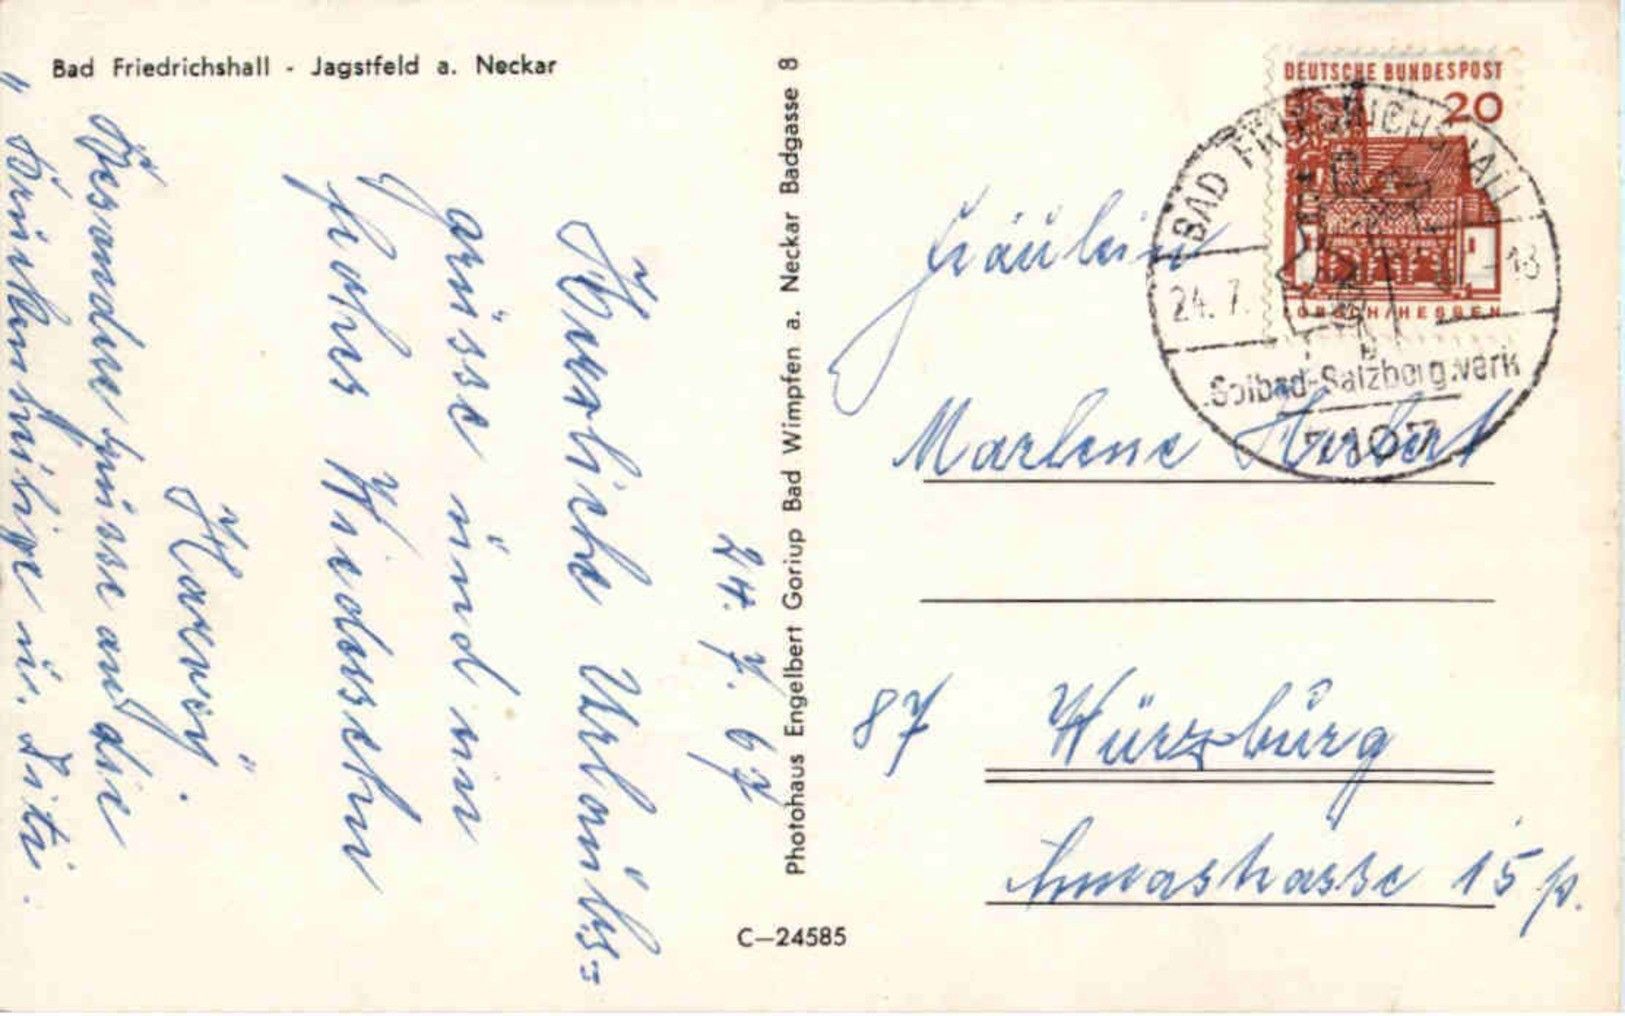 Bad Friedrichshall - Jagstfeld a. Neckar
24. 7. 67
Herrliche Urlaubs=
grüsse und ein
frohes Wiedersehn
Harry.
Besondere Grüsse an die
Photohaus Engelbert Goriup Bad Wimpfen a. Neckar Badgasse 8
C—24585
DEUTSCHE BUNDESPOST
20
LORSCH/HESSEN
BAD FRIEDRICHSHALL
24. 7. - 18
Solbad-Salzbergwerk
7107
Fräulein
Marlene Herbert
87 Würzburg
15 p.